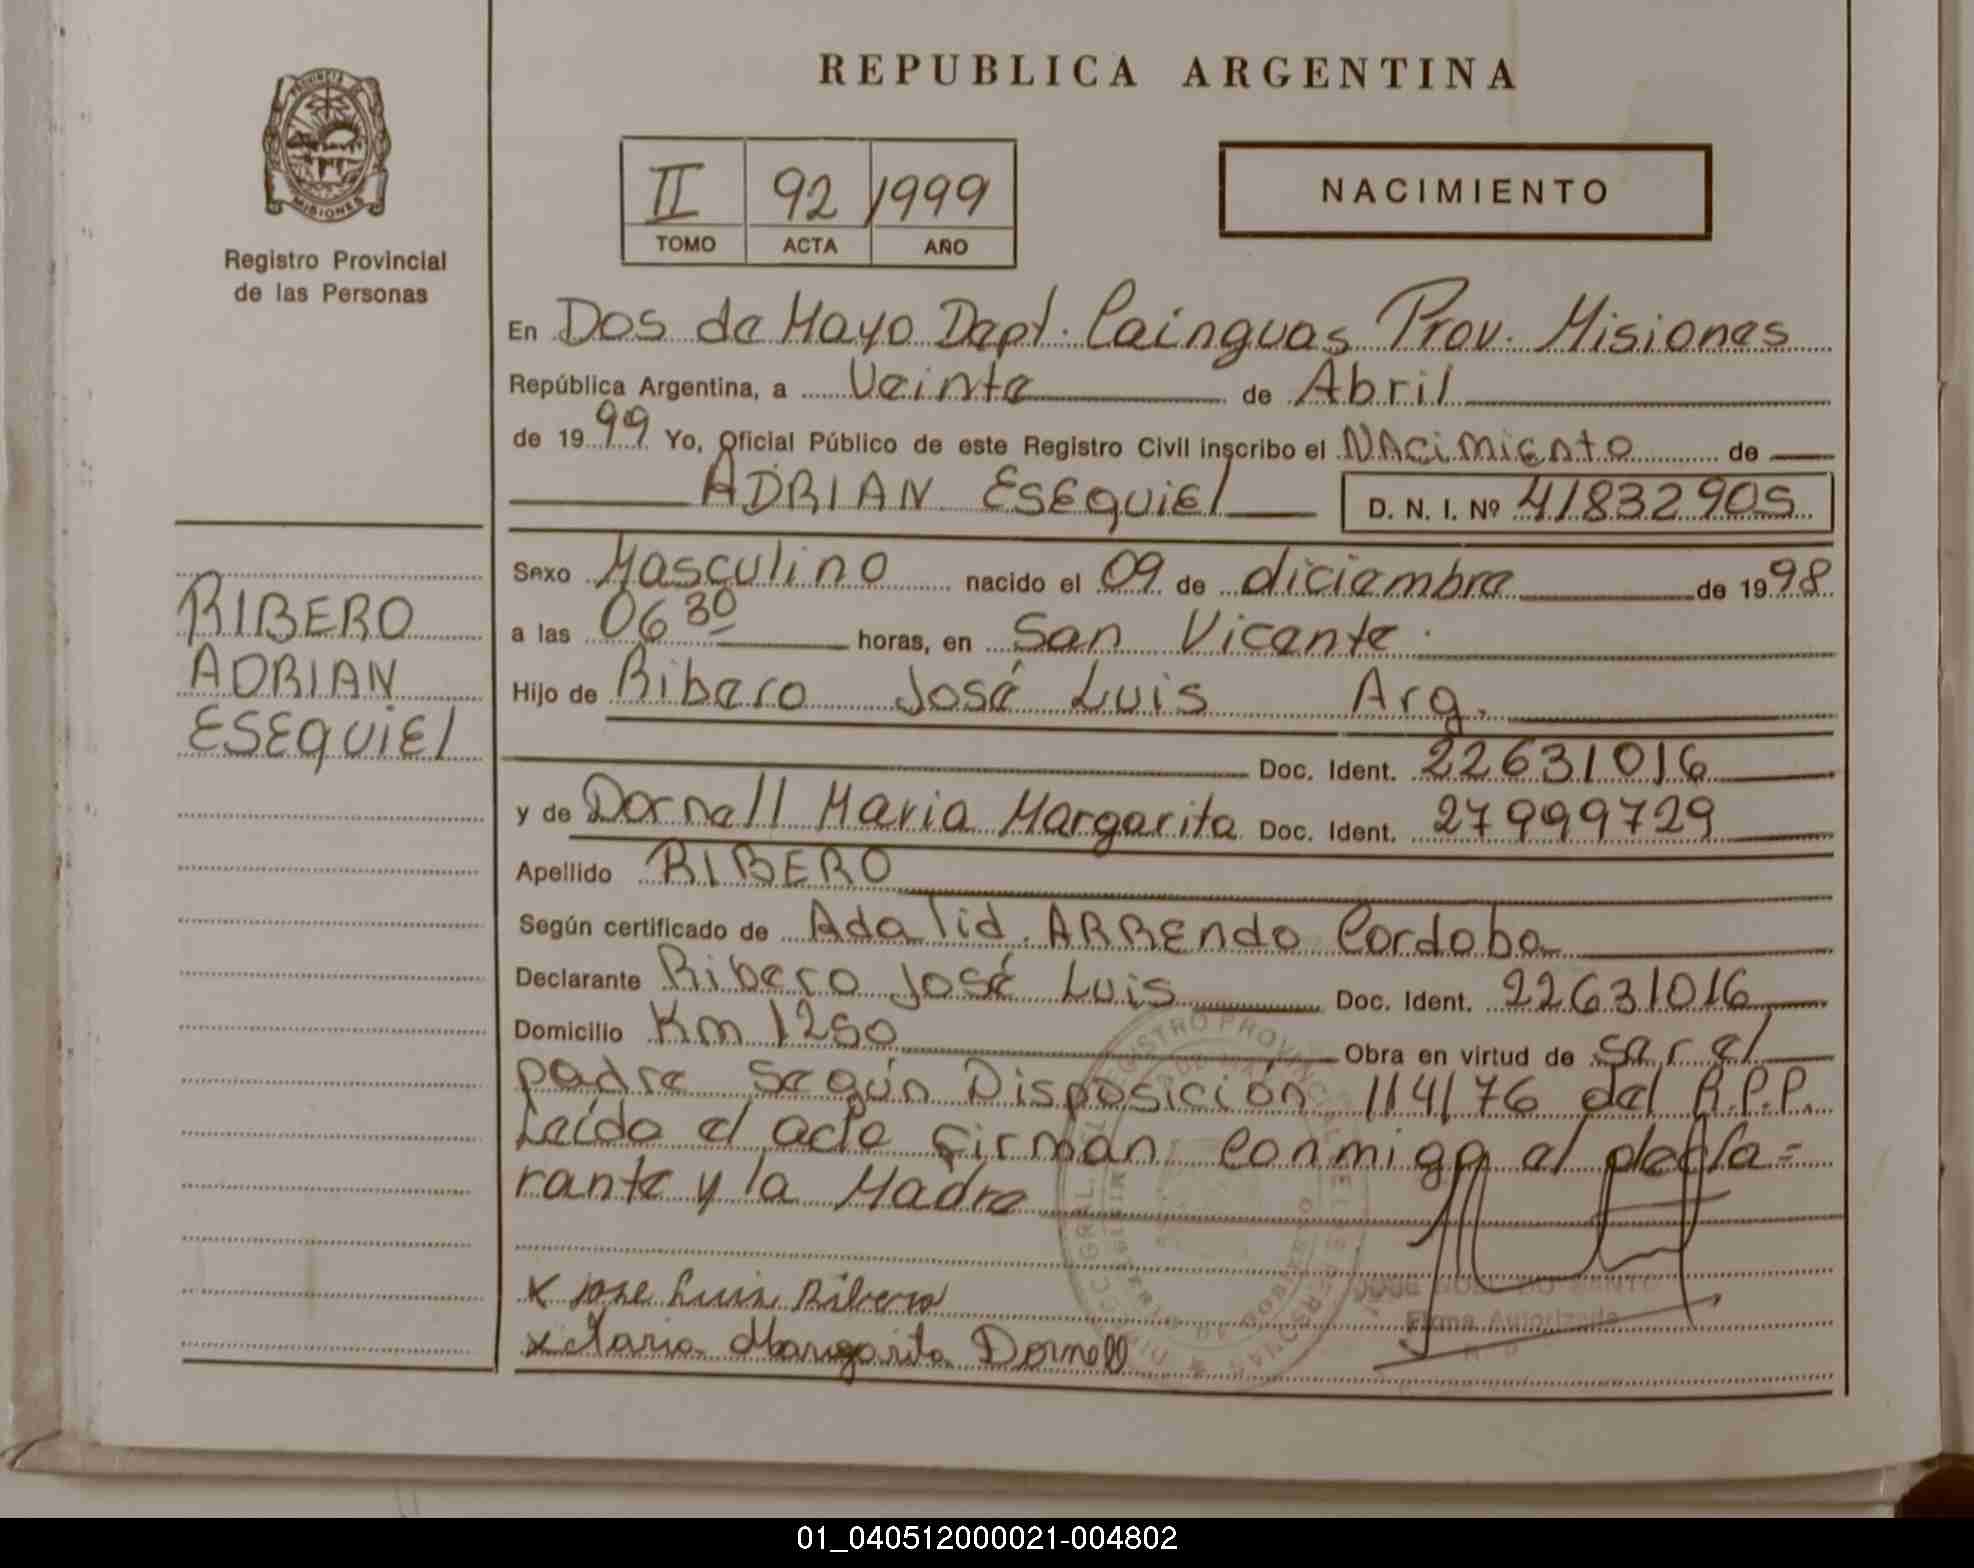 REPUBLICA ARGENTINA
PROVINCIA DE
MISIONES
Registro Provincial
de las Personas
II 92 1999
TOMO ACTA AÑO
NACIMIENTO
En Dos de Mayo Dept. Cainguas Prov. Misiones
República Argentina, a Veinte de Abril
de 1999 Yo, Oficial Público de este Registro Civil inscribo el NAcimiento de
ADRIAN ESEQUIEL D. N. I. Nº 41832905
Sexo Masculino nacido el 09 de diciembre de 1998
a las 06 30 horas, en San Vicente.
Hijo de Ribero José Luis Arg.
Doc. Ident. 22631016
y de Dornell Maria Margarita Doc. Ident. 27999729
Apellido RIBERO
Según certificado de Adalid ARRENdo Cordoba
Declarante Ribero José Luis Doc. Ident. 22631016
Domicilio Km 1250 Obra en virtud de ser el
padre según Disposición 114/76 del R.P.P.
Leído el acta firman conmigo el decla=
rante y la Madre
x Jose Luis Ribero
x Maria Margarita Dornell
Firma Autorizada
RIBERO
ADRIAN
ESEQUIEL
01_040512000021-004802